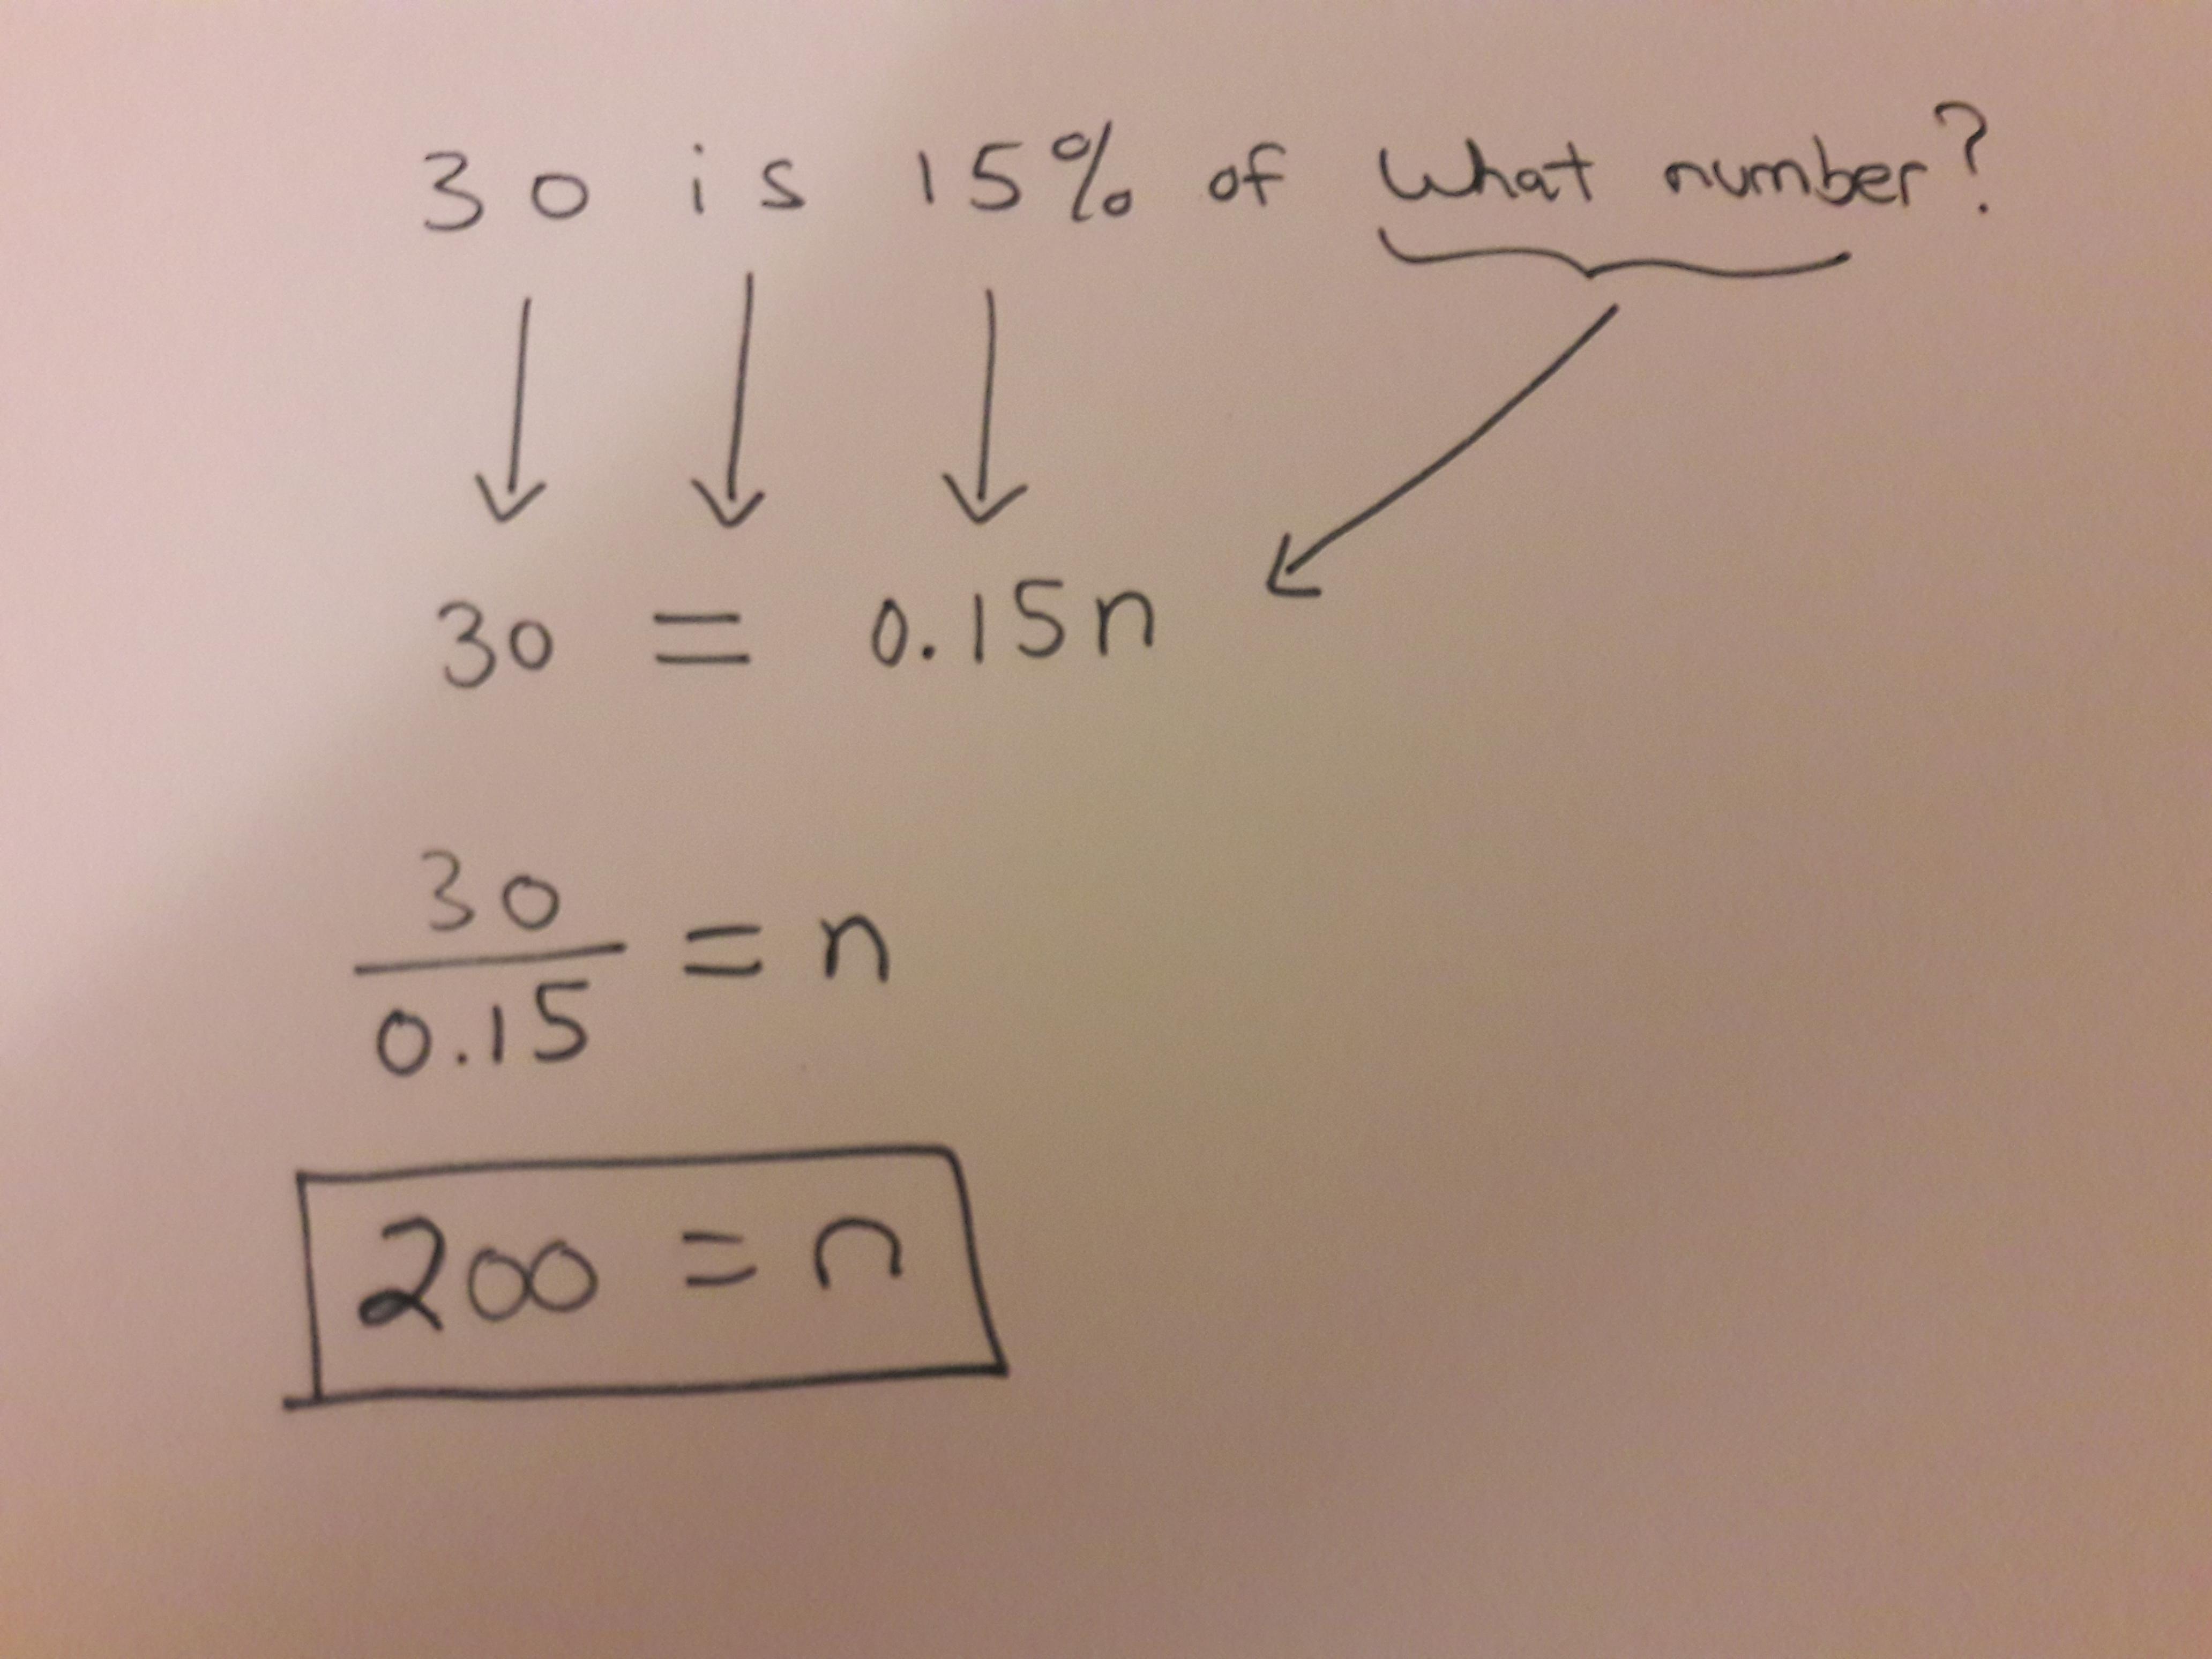 30 is 15% of what number?
30 = 0.15n
30
0.15
= n
200 = n